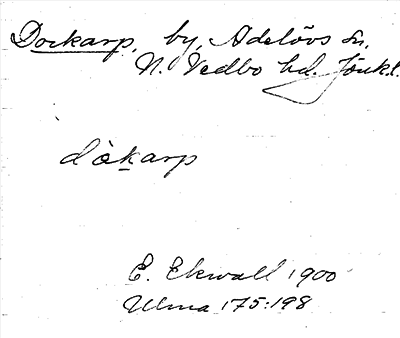 Dockarp, by, Adelövs sn,
N. Vedbo hd. Jönk.l.
dòkarp
E. Ekwall 1900
Ulma 175:198